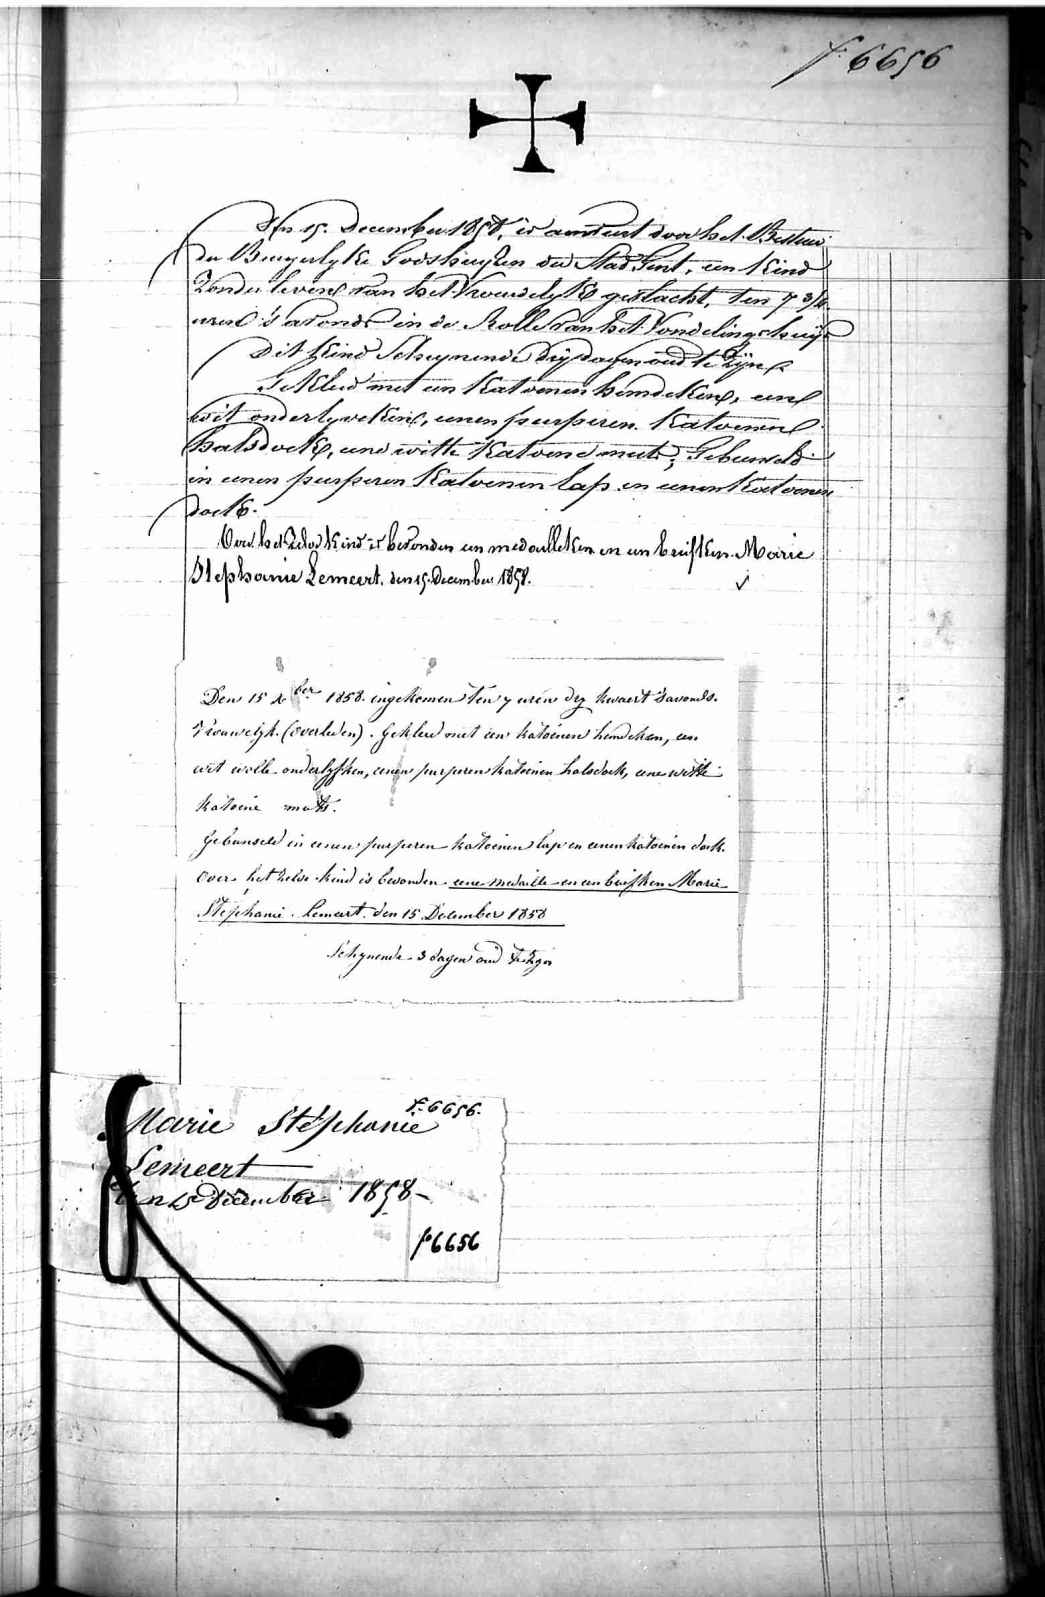 f. 6656
Den 15. December 1858, is aenveert door het Bestuur
der Burgerlyke Godshuyzen der Stad Gent, een kind
zonder leven van het Vrouwelyk geslacht, ten 7 3/4
uren 's avonds in de Rolle van het Vondelinghuys
Dit kind schynende dry dagen oud te zyn
Gekleed met een katoenen hemdeken, een
wit onderlyveken, eenen purperen katoenen
halsdoek, eene witte katoene muts; Gebunseld
in eenen purperen katoenen lap en eenen katoenen
doek.
Over het zelve kind is bevonden een medailleken en een briefken Marie
Stephanie Lemeert. den 15 December 1858.
Den 15 Xber 1858. ingekomen ten 7 uren dry kwaert 's avonds.
Vrouwelyk. (overleden). Gekleed met een katoenen hemdeken, een
wit wolle onderlyfken, eenen purperen katoenen halsdoek, eene witte
katoene muts.
Gebunseld in eenen purperen katoenen lap en eenen katoenen doek.
Over het zelve kind is bevonden eene medaille en een briefken Marie
Stéphanie Lemeert. den 15 December 1858
Schynende 3 dagen oud te zyn
f. 6656.
Marie Stéphanie
Lemeert
den 15 December 1858
f 6656